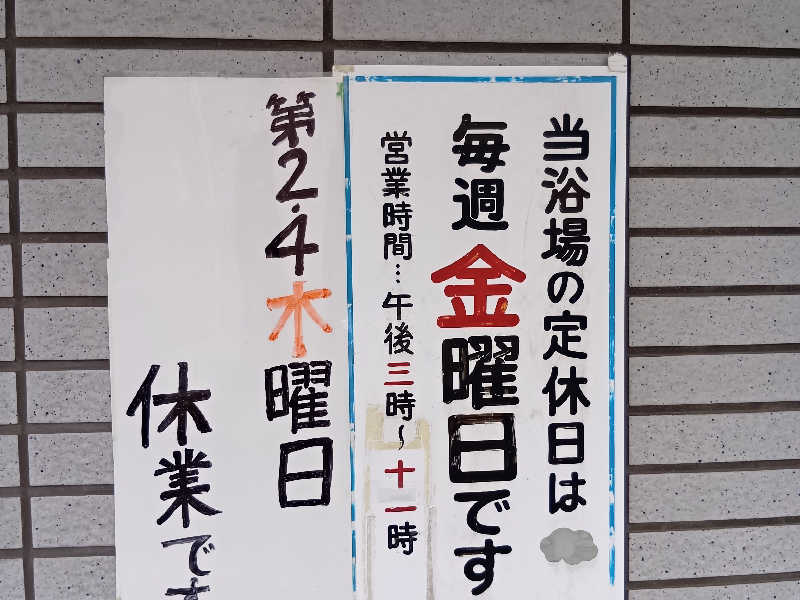 当浴場の定休日は
毎週金曜日です
営業時間…午後三時～十一時
第2.4木曜日
休業です